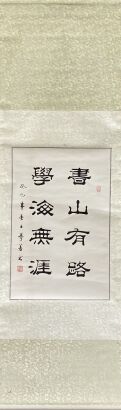 書山有路
學海無涯